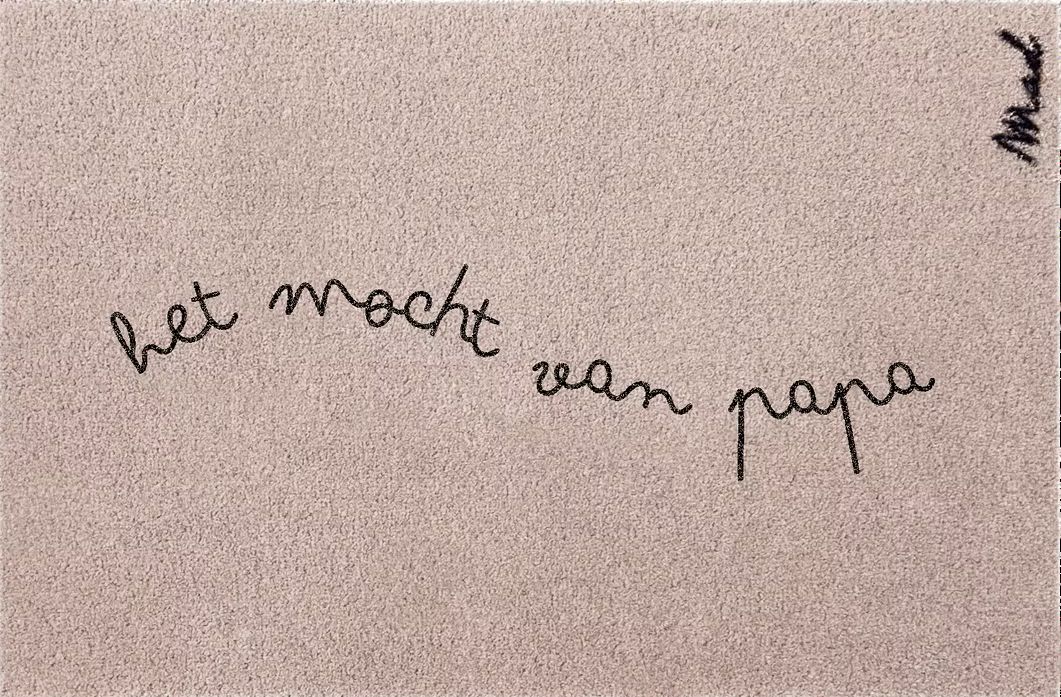 het mocht van papa
Mad